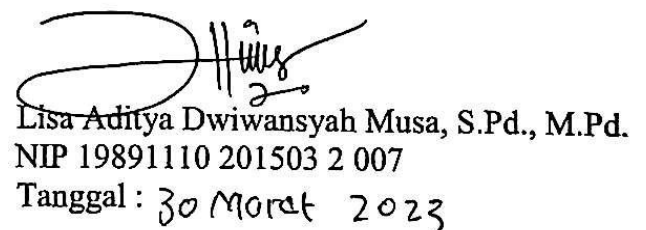 Lisa Aditya Dwiwansyah Musa, S.Pd., M.Pd.
NIP 19891110 201503 2 007
Tanggal : 30 Maret 2023